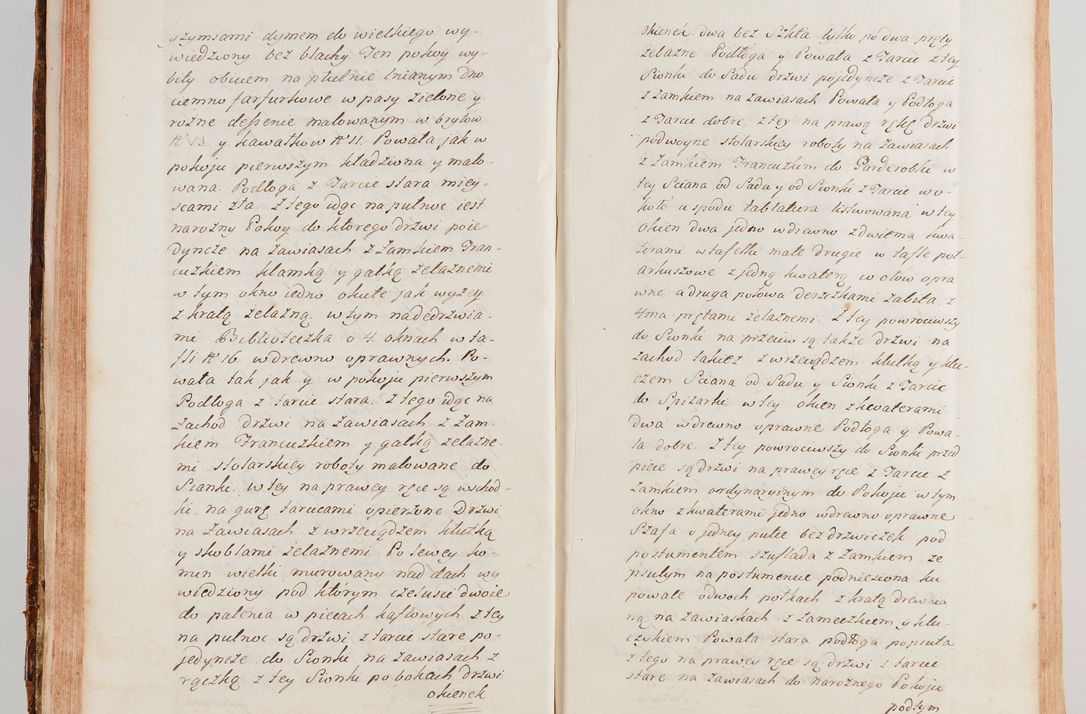 gzymsami dymem do wielkiego wy-
wiedziony bez blachy Ten pokoy wy-
bity obiciem na płutnie lnianym dno
ciemno farfurkowe w pasy zielone y
rozne dessenie malowanym w brytow
N 13. y kawałkow N 11. Powała jak w
pokoju pierwszym kładziona y malo-
wana. Podłoga z Tarcic stara miey-
scami zła. Z tego idąc na pułnoc iest
narozny Pokoy do ktorego drzwi poie-
dyncze na zawiasach z Zamkiem Fran-
cuzkiem klamką y gałką zelaznemi
w tym okno iedno okute jak wyzey
z kratą zelazną. w tym nadedrzwia-
mi Biblioteczka o 4. oknach w ta-
fli N 16 w drewno oprawnych. Po-
wała tak jak y w pokoju pierwszym
Podłoga z tarcic stara. Z tego idąc na
Zachod drzwi na zawiasach z Zam-
kiem Francuzkiem y gałką zelazne-
mi stolarskiey roboty malowane do
Sianki. w tey na prawey ręce są wschod-
ki na gurę tarcicami opierzone Drzwi
na zawiasach z wrzeciądzem kłutką
y skoblami zelaznemi Po lewey ko-
min wielki murowany nad dach wy-
wiedziony pod ktorym czeluscie dwoie
do palenia w piecach kaflowych z tey
na pułnoc są drzwi z tarcic stare po-
jedyncze do Sionki na zawiasach z
rączką z tey Sionki po bokach drzwi
okienek
okienek dwa bez Szkła tylko po dwa pręty
zelazne Podłoga y Powała z Tarcic z tey
Sionki do Sadu drzwi pojedyncze z Tarcic
z Zamkiem na zawiasach Powała y Podłoga
z Tarcic dobre, z tey na prawą rękę drzwi
podwoyne stolarskiey roboty na zawiasach
z Zamkiem Francuzkim do Garderobki w
tey Sciana od Sadu y od Sionki z Tarcic wo-
koło u spodu Tablatura listwowana w tey
okien dwa jedno w drewno z dwiema kwa-
terami w tafelki małe drugie w tafle puł-
arkuszowe z jedną kwaterą w ołow opra
wne, a druga połowa deszczkami zabita, z
4ma prętami zelaznemi. Z tey powrociwszy
do Sionki na przeciw są także drzwi na
zachod takiez z wrzeciądzem kłutką y klu-
czem Sciana od Sadu y Sionki z Tarcic
do Spizarki w tey okien z kwaterami
dwa w drewno oprawne Podłoga y Powa-
ła dobre. Z tey powrociwszy do Sionki przed
piece są drzwi na prawey ręce z Tarcic z
Zamkiem ordynaryinym do Pokoju w tym
okno z kwaterami jedno w drewno oprawne
Szafa o jedney pułce bez drzwiczek pod
postumentem szuflada z Zamkiem ze
psutym na postumencie podniesiona ku
powale o dwoch pułkach z kratą drewnia
ną na zawiaskach z Zameczkiem y klu-
czykiem Powała stara podłoga popsuta
z tego na prawey ręce są drzwi z tarcic
stare na zawiasach do naroznego Pokoju
pod tym